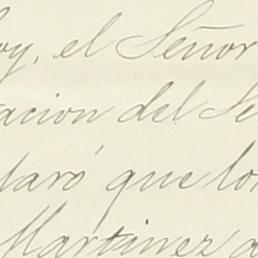 oy, el Señor
acion del Se
laró que lo
Martinez a